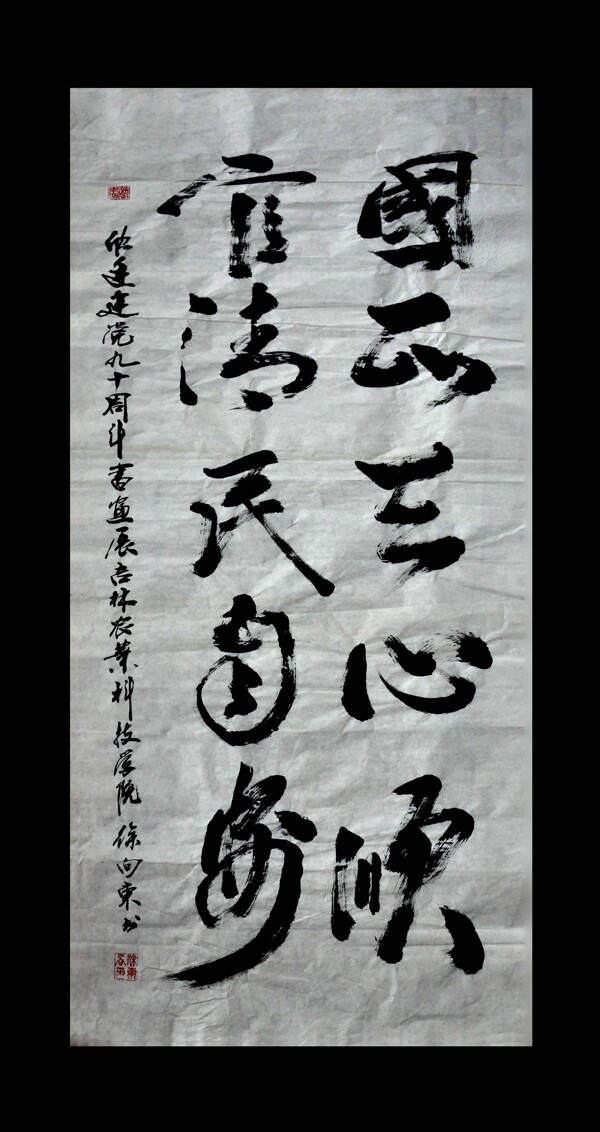 國正天心順
官清民自安
欣逢建党九十周年書畫展吉林农業科技学院徐向東书